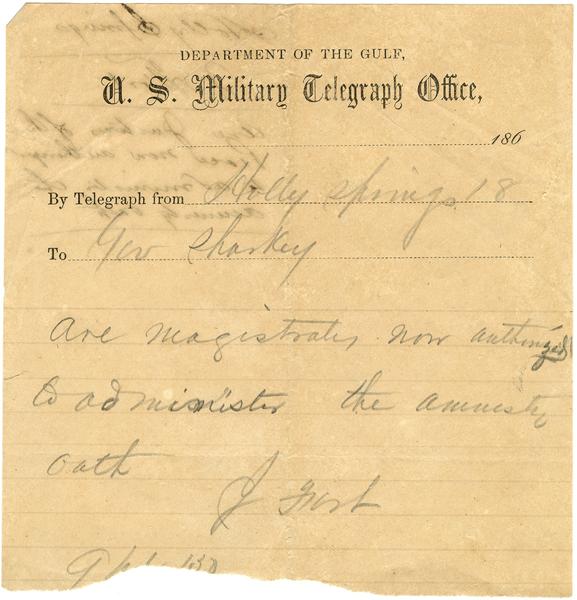 DEPARTMENT OF THE GULF,
U. S. Military Telegraph Office,
186
By Telegraph from Holly Springs 18
To Gov Sharkey
Are magistrates now authorized
to administer the amnesty
oath
J